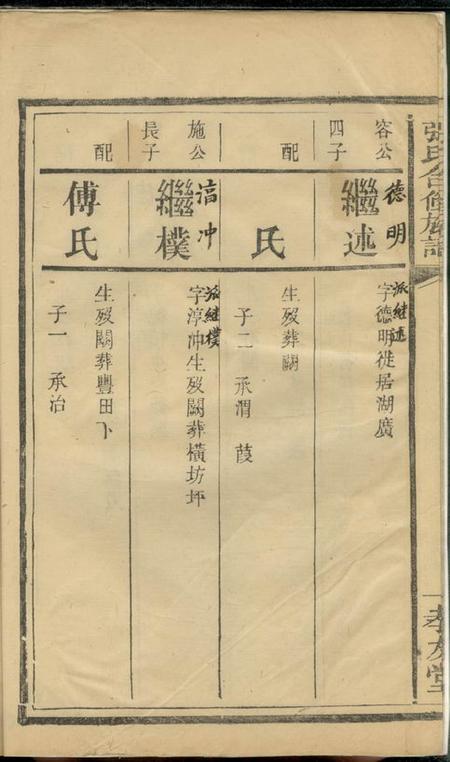 張氏合修族譜
孝友堂
容公
四子
繼述
德明
派繼述
字德明徙居湖廣
配
氏
生歿葬闕
子二 承渭 葭
施公
長子
繼樸
冲
派繼樸
字淳冲生歿闕葬橫坊坪
配
傅氏
生歿闕葬豐田下
子一 承治